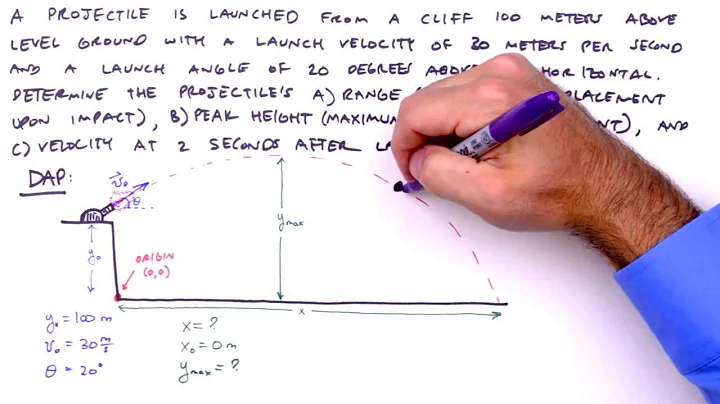 A PROJECTILE IS LAUNCHED FROM A CLIFF 100 METERS ABOVE
LEVEL GROUND WITH A LAUNCH VELOCITY OF 30 METERS PER SECOND
AND A LAUNCH ANGLE OF 20 DEGREES ABOVE HORIZONTAL.
DETERMINE THE PROJECTILE'S A) RANGE
UPON IMPACT), B) PEAK HEIGHT (MAXIMUM), AND
C) VELOCITY AT 2 SECONDS AFTER
DAP:
v⃗₀
θ
y₀
ORIGIN
(0,0)
yₘₐₓ
x
y₀ = 100 m
v₀ = 30 m/s
θ = 20°
x = ?
x₀ = 0 m
yₘₐₓ = ?